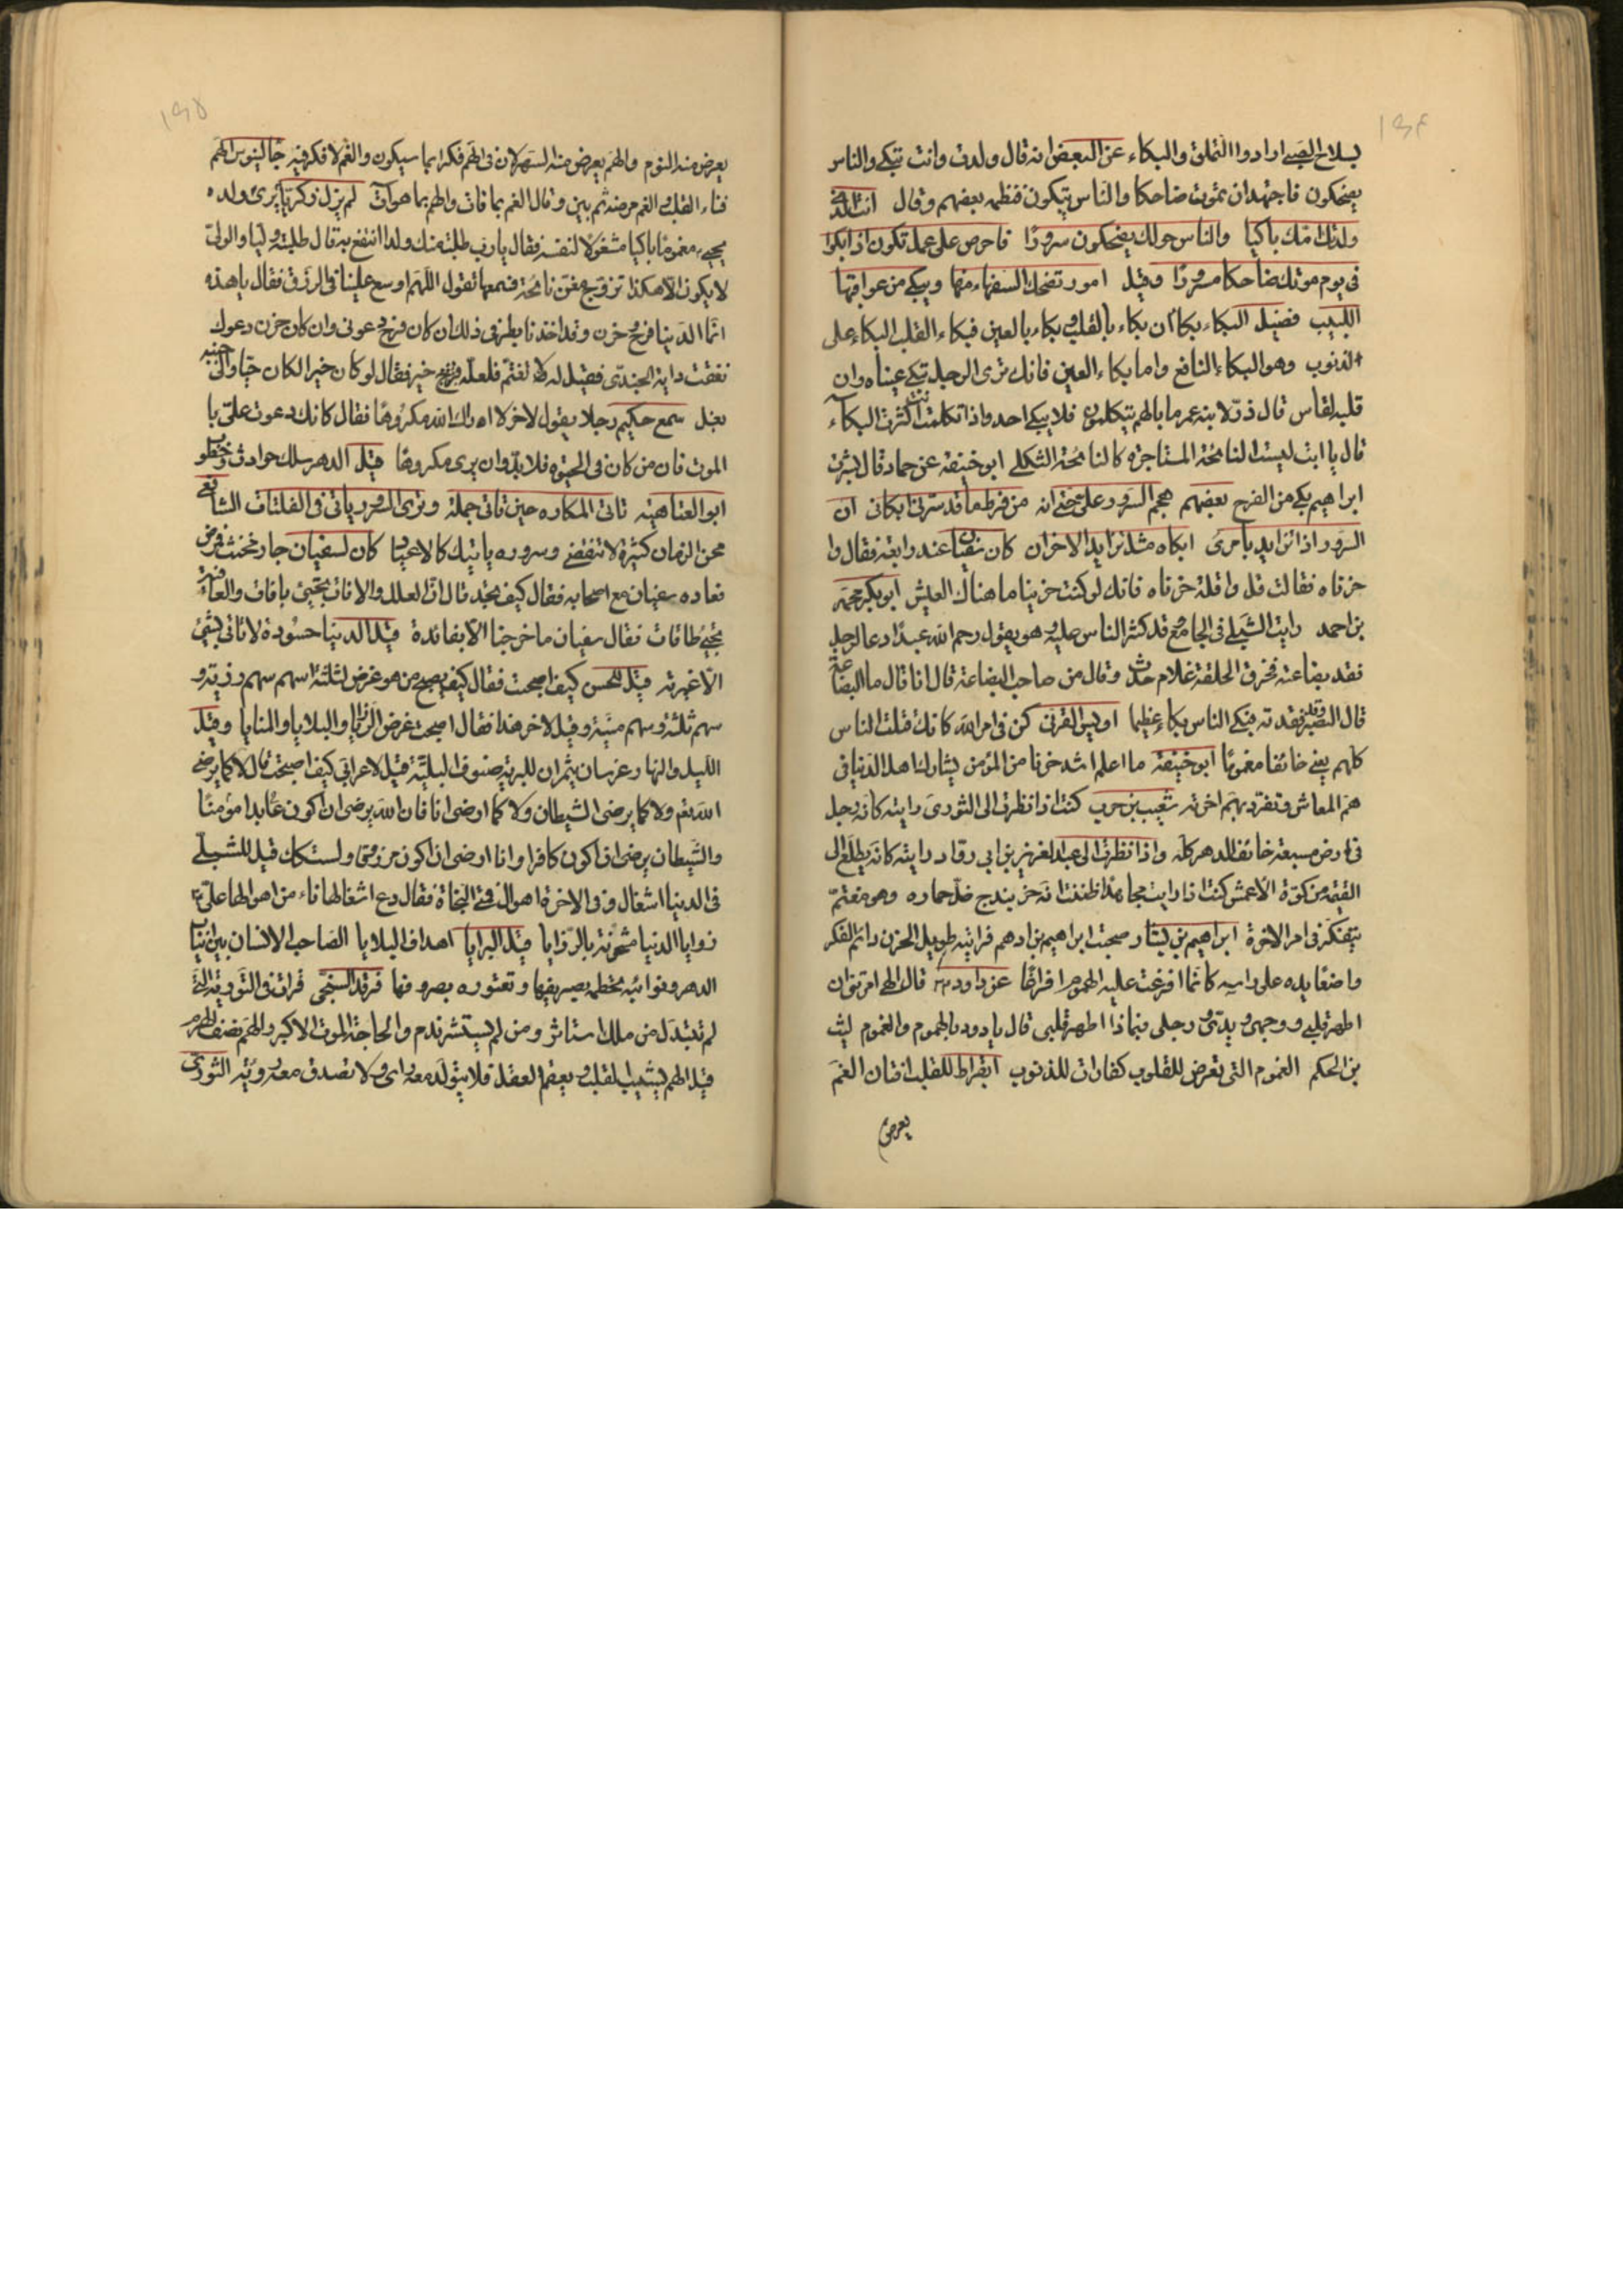 ١٦٤
بسلاح الصبي ارادوا التملق والبكاء عن البعض انه قال ولدت وانت تبكي والناس
يضحكون فاجتهد ان تموت ضاحكا والناس يبكون فنظمه بعضهم وقال انت الذي
ولدتك امك باكيا والناس حولك يضحكون سرورا فاحرص على عمل تكون اذا بكوا
في يوم موتك ضاحكا مسرورا وقيل امور تضحك السفهاء منها ويبكي من عواقبها
اللبيب فضيل البكاء بكاان بكاء بالقلب وبكاء بالعين فبكاء القلب البكاء على
الذنوب وهو البكاء النافع واما بكاء العين فانك ترى الرجل تبكي عيناه وان
قلبه لقاس قال ذر لابنه عمر ما بالهم يتكلمون فلا يبكي احد واذا تكلمت انت كثرت البكاء
قال يا ابت ليست النائحة المستاجرة كالنائحة الثكلى ابو حنيفة عن حماد قال بشرت
ابراهيم بكى من الفرح بعضهم هجم السرور على حتى انه من فرط ما قد سرني ابكاني ان
السرور اذا تزايد بامرئ ابكاه مثل تزايد الاحزان كان سفيان عند رابعة فقال وا
حزناه فقالت قل وا قلة حزناه فانك لو كنت حزينا ما هناك العيش ابو بكر محمد
بن احمد رايت الشبلي في الجامع قد كثر الناس عليه وهو يقول رحم الله عبدا دعا لرجل
فقد بضاعته فخرق الحلقة غلام حدث وقال من صاحب البضاعة قال انا قال ما البضاعة
قال الصبر وقد فقدته فبكى الناس بكاء عظيما اويس القرني كن في امر الله كانك قتلت الناس
كلهم يعني خائفا مغموما ابو حنيفة ما اعلم اشد حزنا من المؤمن يشارك اهل الدنيا في
هم المعاش وتفرد بهم اخرته شعيب بن حرب كنت اذا نظرت الى الثوري رايته كانه رجل
في ارض مسبعة خائف الدهر كله واذا نظرت الى عبد العزيز بن ابي رواد رايته كانه يطلع الى
القيمة من كوة الاعمش كنت اذا رايت مجاهدا ظننت انه خربندج ضل حماره وهو مغتم
يتفكر في امر الاخرة ابراهيم بن بشار صحبت ابراهيم بن ادهم فرايته طويل الحزن دائم الفكر
واضعا يده على راسه كانما افرغت عليه الهموم افراغا عن داود قال الهي امرتني ان
اطهر قلبي ووجهي ويدي ورجلي فبماذا اطهر قلبي قال يا داود بالهموم والغموم ليث
بن الحكم الغموم التي تعرض للقلوب كفارات للذنوب ابقراط للقلب افتان الغم
يعرض
١٦٥
يعرض منه النوم والهم يعرض منه السهر لان في الهم فكرا بما سيكون والغم لا فكر فيه جالينوس الهم
فناء القلب والغم مرضه ثم بين وقال الغم بما فات والهم بما هو آت لم يزل زكريا يرى ولده
يحيى مغموما باكيا مشغولا لنفسه فقال يا رب طلبت منك ولدا انتفع به قال طلبته وليا والولي
لا يكون الا هكذا تزوج مغن نائحة فسمعها تقول اللهم اوسع علينا في الرزق فقال يا هذه
انما الدنيا فرح وحزن وقد اخذنا بطرفي ذلك ان كان فرح دعوني وان كان حزن دعوك
نفقت دابة لجندي فقيل له لا تغتم فلعله خير فقال لو كان خيرا لكان حيا والى جنبه
بغل سمع حكيم رجلا يقول لاخر لا اراك الله مكروها فقال كانك دعوت علي با
الموت فان من كان في الحيوة فلا بد وان يرى مكروها قيل الدهر سلك حوادث وخطوب
ابو العتاهية تاتي المكاره حين تاتي جملة وترى السرور ياتي في الفلتات الشافعي
محن الزمان كثيرة لا تنقضي وسروره ياتيك كالاعياد كان لسفيان جار مخنث فمرض
فعاده سفيان مع اصحابه فقال كيف تجد قال ان العلل والافات تجيئ باقات والعافية
تجيئ طاقات فقال سفيان ما خرجنا الا بفائدة قيل الدنيا حسودة لا تاتي بشيئ
الا غيرته قيل للحسن كيف اصبحت فقال كيف يصبح من هو غرض لثلثة اسهم سهم رزية و
سهم بلية وسهم منية وقيل لاخر هذا فقال اصبحت غرض الرزايا والبلايا والمنايا وقيل
الليل والنهار غرسان يثمران للبرية صنوف البلية قيل لاعرابي كيف اصبحت قال لا كما يرضى
الله تعم ولا كما يرضى الشيطان ولا كما ارضى انا فان الله يرضى ان اكون عابدا مؤمنا
والشيطان يرضى ان اكون كافرا وانا ارضى ان اكون مرزوقا ولست كذلك قيل للشبلي
في الدنيا اشغال وفي الاخرة اهوال فمتى النجاة فقال دع اشغالها تاء من اهوالها علي
زوايا الدنيا مشحونة بالرزايا قيل البرايا اهداف البلايا الصاحب الانسان بين انياب
الدهر ونوائبه تخطمه بصريفها وتعتوره بصروفها فرقد السبخي قرات في التورية
لم تتبدل من ملك استاثر ومن لم يستشر ندم والحاجة الموت الاكبر والهم نصف الهرم
قيل الهم يشيب القلب ويعقم العقل فلا يتولد معه راي ولا تصدق معه روية الثوري